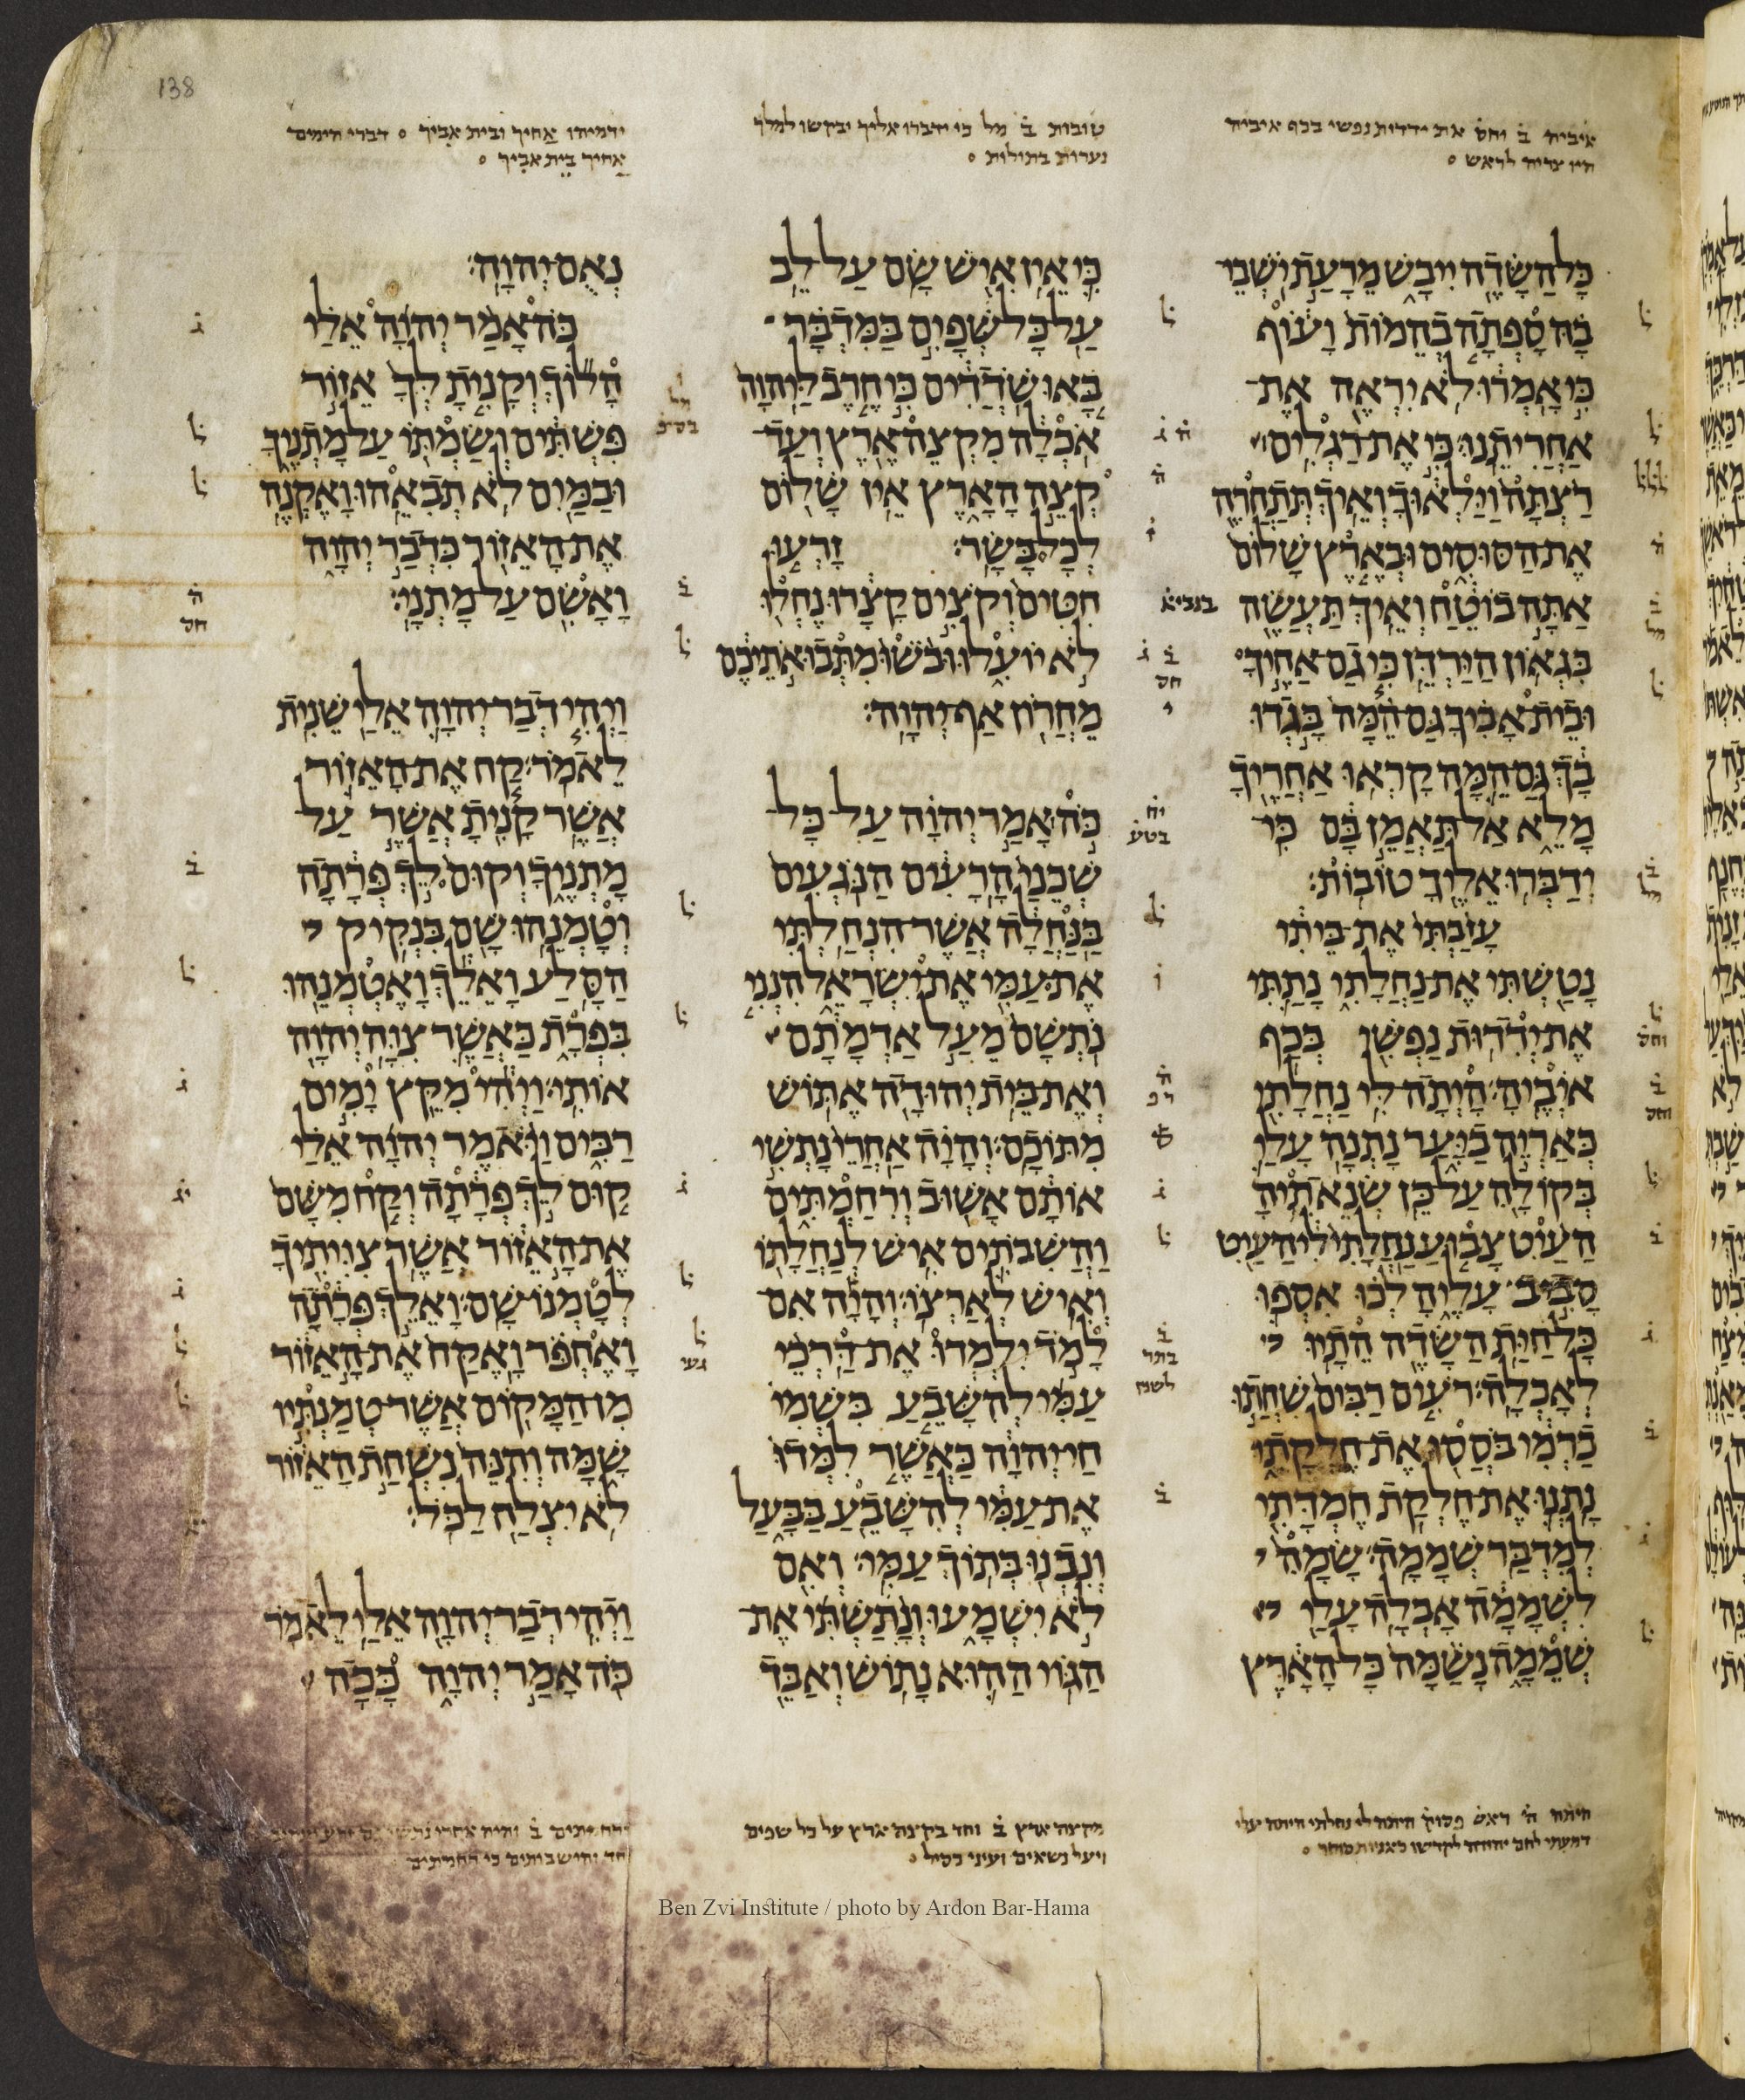 138
איביה ב וחס את ידדות נפשי בכף איביה
היו צריה לראש
טובות ב מל כי ידברו אליך יבקשו למלך
נערות בתולות
ירמיהו אחיך ובית אביך ○ דברי הימים
אחיך בית אביך
כָּל הַשָּׂדֶה יִיבָשׁ מֵרָעַת יֹשְׁבֵי
בָהּ סָפְתָה בְהֵמוֹת וָעוֹף
כִּי אָמְרוּ לֹא יִרְאֶה אֶת
אַחֲרִיתֵנוּ׃ כִּי אֶת רַגְלִים
רַצְתָּה וַיַּלְאוּךָ וְאֵיךְ תְּתַחֲרֶה
אֶת הַסּוּסִים וּבְאֶרֶץ שָׁלוֹם
אַתָּה בוֹטֵחַ וְאֵיךְ תַּעֲשֶׂה
בִּגְאוֹן הַיַּרְדֵּן׃ כִּי גַם אַחֶיךָ
וּבֵית אָבִיךָ גַּם הֵמָּה בָּגְדוּ
בָךְ גַּם הֵמָּה קָרְאוּ אַחֲרֶיךָ
מָלֵא אַל תַּאֲמֵן בָּם כִּי
יְדַבְּרוּ אֵלֶיךָ טוֹבוֹת׃
עָזַבְתִּי אֶת בֵּיתִי
נָטַשְׁתִּי אֶת נַחֲלָתִי נָתַתִּי
אֶת יְדִדוּת נַפְשִׁי בְּכַף
אוֹיְבֶיהָ׃ הָיְתָה לִּי נַחֲלָתִי
כְּאַרְיֵה בַיָּעַר נָתְנָה עָלַי
בְּקוֹלָהּ עַל כֵּן שְׂנֵאתִיהָ׃
הַעַיִט צָבוּעַ נַחֲלָתִי לִי הַעַיִט
סָבִיב עָלֶיהָ לְכוּ אִסְפוּ
כָּל חַיַּת הַשָּׂדֶה הֵתָיוּ
לְאָכְלָה׃ רֹעִים רַבִּים שִׁחֲתוּ
כַרְמִי בֹּסְסוּ אֶת חֶלְקָתִי
נָתְנוּ אֶת חֶלְקַת חֶמְדָּתִי
לְמִדְבַּר שְׁמָמָה׃ שָׂמָהּ
לִשְׁמָמָה אָבְלָה עָלַי
שְׁמֵמָה נָשַׁמָּה כָּל הָאָרֶץ
כִּי אֵין אִישׁ שָׂם עַל לֵב׃
עַל כָּל שְׁפָיִם בַּמִּדְבָּר
בָּאוּ שֹׁדְדִים כִּי חֶרֶב לַיהוָה
אֹכְלָה מִקְצֵה אֶרֶץ וְעַד
קְצֵה הָאָרֶץ אֵין שָׁלוֹם
לְכָל בָּשָׂר׃ זָרְעוּ
חִטִּים וְקֹצִים קָצָרוּ נֶחְלוּ
לֹא יוֹעִלוּ וּבֹשׁוּ מִתְּבוּאֹתֵיכֶם
מֵחֲרוֹן אַף יְהוָה׃
כֹּה אָמַר יְהוָה עַל כָּל
שְׁכֵנַי הָרָעִים הַנֹּגְעִים
בַּנַּחֲלָה אֲשֶׁר הִנְחַלְתִּי
אֶת עַמִּי אֶת יִשְׂרָאֵל הִנְנִי
נֹתְשָׁם מֵעַל אַדְמָתָם
וְאֶת בֵּית יְהוּדָה אֶתּוֹשׁ
מִתּוֹכָם׃ וְהָיָה אַחֲרֵי נָתְשִׁי
אוֹתָם אָשׁוּב וְרִחַמְתִּים
וַהֲשִׁבֹתִים אִישׁ לְנַחֲלָתוֹ
וְאִישׁ לְאַרְצוֹ׃ וְהָיָה אִם
לָמֹד יִלְמְדוּ אֶת דַּרְכֵי
עַמִּי לְהִשָּׁבֵעַ בִּשְׁמִי
חַי יְהוָה כַּאֲשֶׁר לִמְּדוּ
אֶת עַמִּי לְהִשָּׁבֵעַ בַּבָּעַל
וְנִבְנוּ בְּתוֹךְ עַמִּי׃ וְאִם
לֹא יִשְׁמָעוּ וְנָתַשְׁתִּי אֶת
הַגּוֹי הַהוּא נָתוֹשׁ וְאַבֵּד
נְאֻם יְהוָה׃
כֹּה אָמַר יְהוָה אֵלַי
הָלוֹךְ וְקָנִיתָ לְּךָ אֵזוֹר
פִּשְׁתִּים וְשַׂמְתּוֹ עַל מָתְנֶיךָ
וּבַמַּיִם לֹא תְבִאֵהוּ׃ וָאֶקְנֶה
אֶת הָאֵזוֹר כִּדְבַר יְהוָה
וָאָשִׂם עַל מָתְנָי׃
וַיְהִי דְבַר יְהוָה אֵלַי שֵׁנִית
לֵאמֹר׃ קַח אֶת הָאֵזוֹר
אֲשֶׁר קָנִיתָ אֲשֶׁר עַל
מָתְנֶיךָ וְקוּם לֵךְ פְּרָתָה
וְטָמְנֵהוּ שָׁם בִּנְקִיק
הַסָּלַע׃ וָאֵלֵךְ וָאֶטְמְנֵהוּ
בִּפְרָת כַּאֲשֶׁר צִוָּה יְהוָה
אוֹתִי׃ וַיְהִי מִקֵּץ יָמִים
רַבִּים וַיֹּאמֶר יְהוָה אֵלַי
קוּם לֵךְ פְּרָתָה וְקַח מִשָּׁם
אֶת הָאֵזוֹר אֲשֶׁר צִוִּיתִיךָ
לְטָמְנוֹ שָׁם׃ וָאֵלֵךְ פְּרָתָה
וָאֶחְפֹּר וָאֶקַּח אֶת הָאֵזוֹר
מִן הַמָּקוֹם אֲשֶׁר טְמַנְתִּיו
שָׁמָּה וְהִנֵּה נִשְׁחַת הָאֵזוֹר
לֹא יִצְלַח לַכֹּל׃
וַיְהִי דְבַר יְהוָה אֵלַי לֵאמֹר׃
כֹּה אָמַר יְהוָה כָּכָה
היתה ה ראש פסוק היתה לי נחלתי היתה עלי
דמעתי לחם יהודה לקדשו כאניות סוחר
מקצה ארץ ב וחד בקצה ארץ על כל שפים
ויעל נשאים ועיני כסיל
ורחמתים ב והיה אחרי נתשי
וחד והושבותים כי רחמתים
Ben Zvi Institute / photo by Ardon Bar-Hama